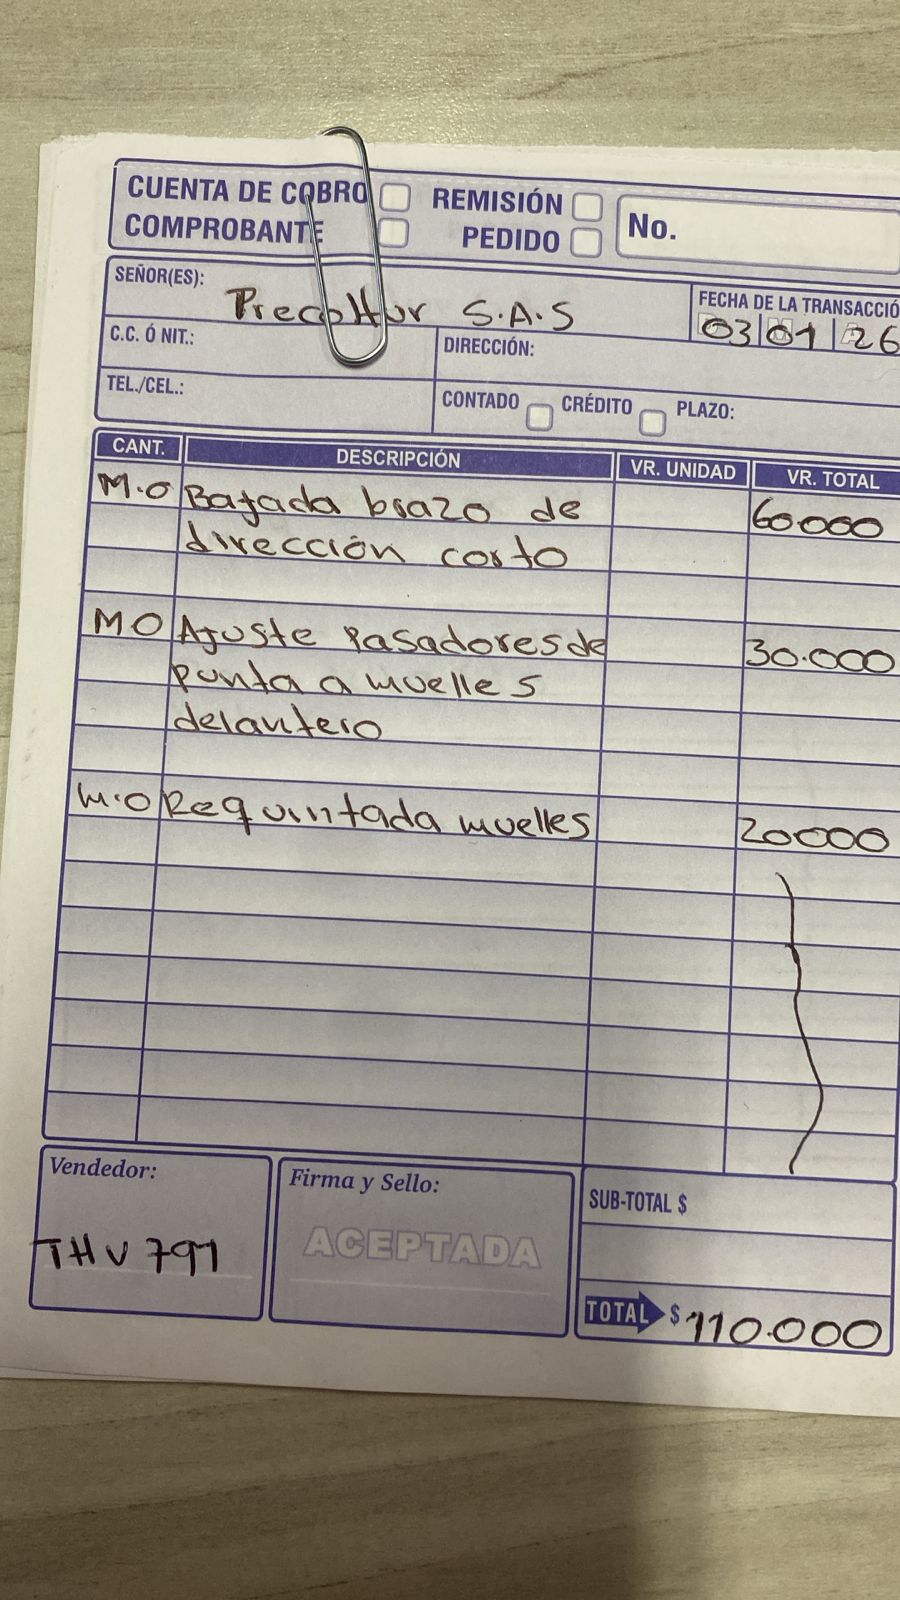 CUENTA DE COBRO REMISIÓN No.
COMPROBANTE PEDIDO
SEÑOR(ES): Precoltur S.A.S
FECHA DE LA TRANSACCIÓ
03 01 26
C.C. Ó NIT.: DIRECCIÓN:
TEL./CEL.: CONTADO CRÉDITO PLAZO:
CANT. DESCRIPCIÓN VR. UNIDAD VR. TOTAL
M.O Bajada brazo de 60.000
dirección corto
MO Ajuste pasadores de 30.000
punta a muelles
delantero
M.O Requintada muelles 20000
Vendedor: Firma y Sello: SUB-TOTAL $
THV 791 ACEPTADA
TOTAL $ 110.000